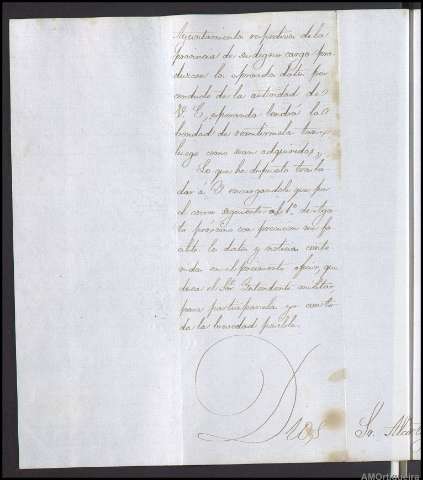 Ayuntamientos respectivos de la
provincia de su digno cargo pro
duzcan los espresados datos por
conducto de la autoridad de
V. E., esperando tendrá la
bondad de remitirmelos tan
luego como sean adquiridos,
Lo que he dispuesto trasla
dar á V. encargandole que por
el correo siguiente al 1º. de Agos
to próximo con precision me fa
cilite los datos y noticias conte
nidas en el preinserto oficio, que
desea el Sor. Intendente militar
para participarselo yo con to
da la brevedad posible.
Dios
Sr. Alcal
AMOrtigueira